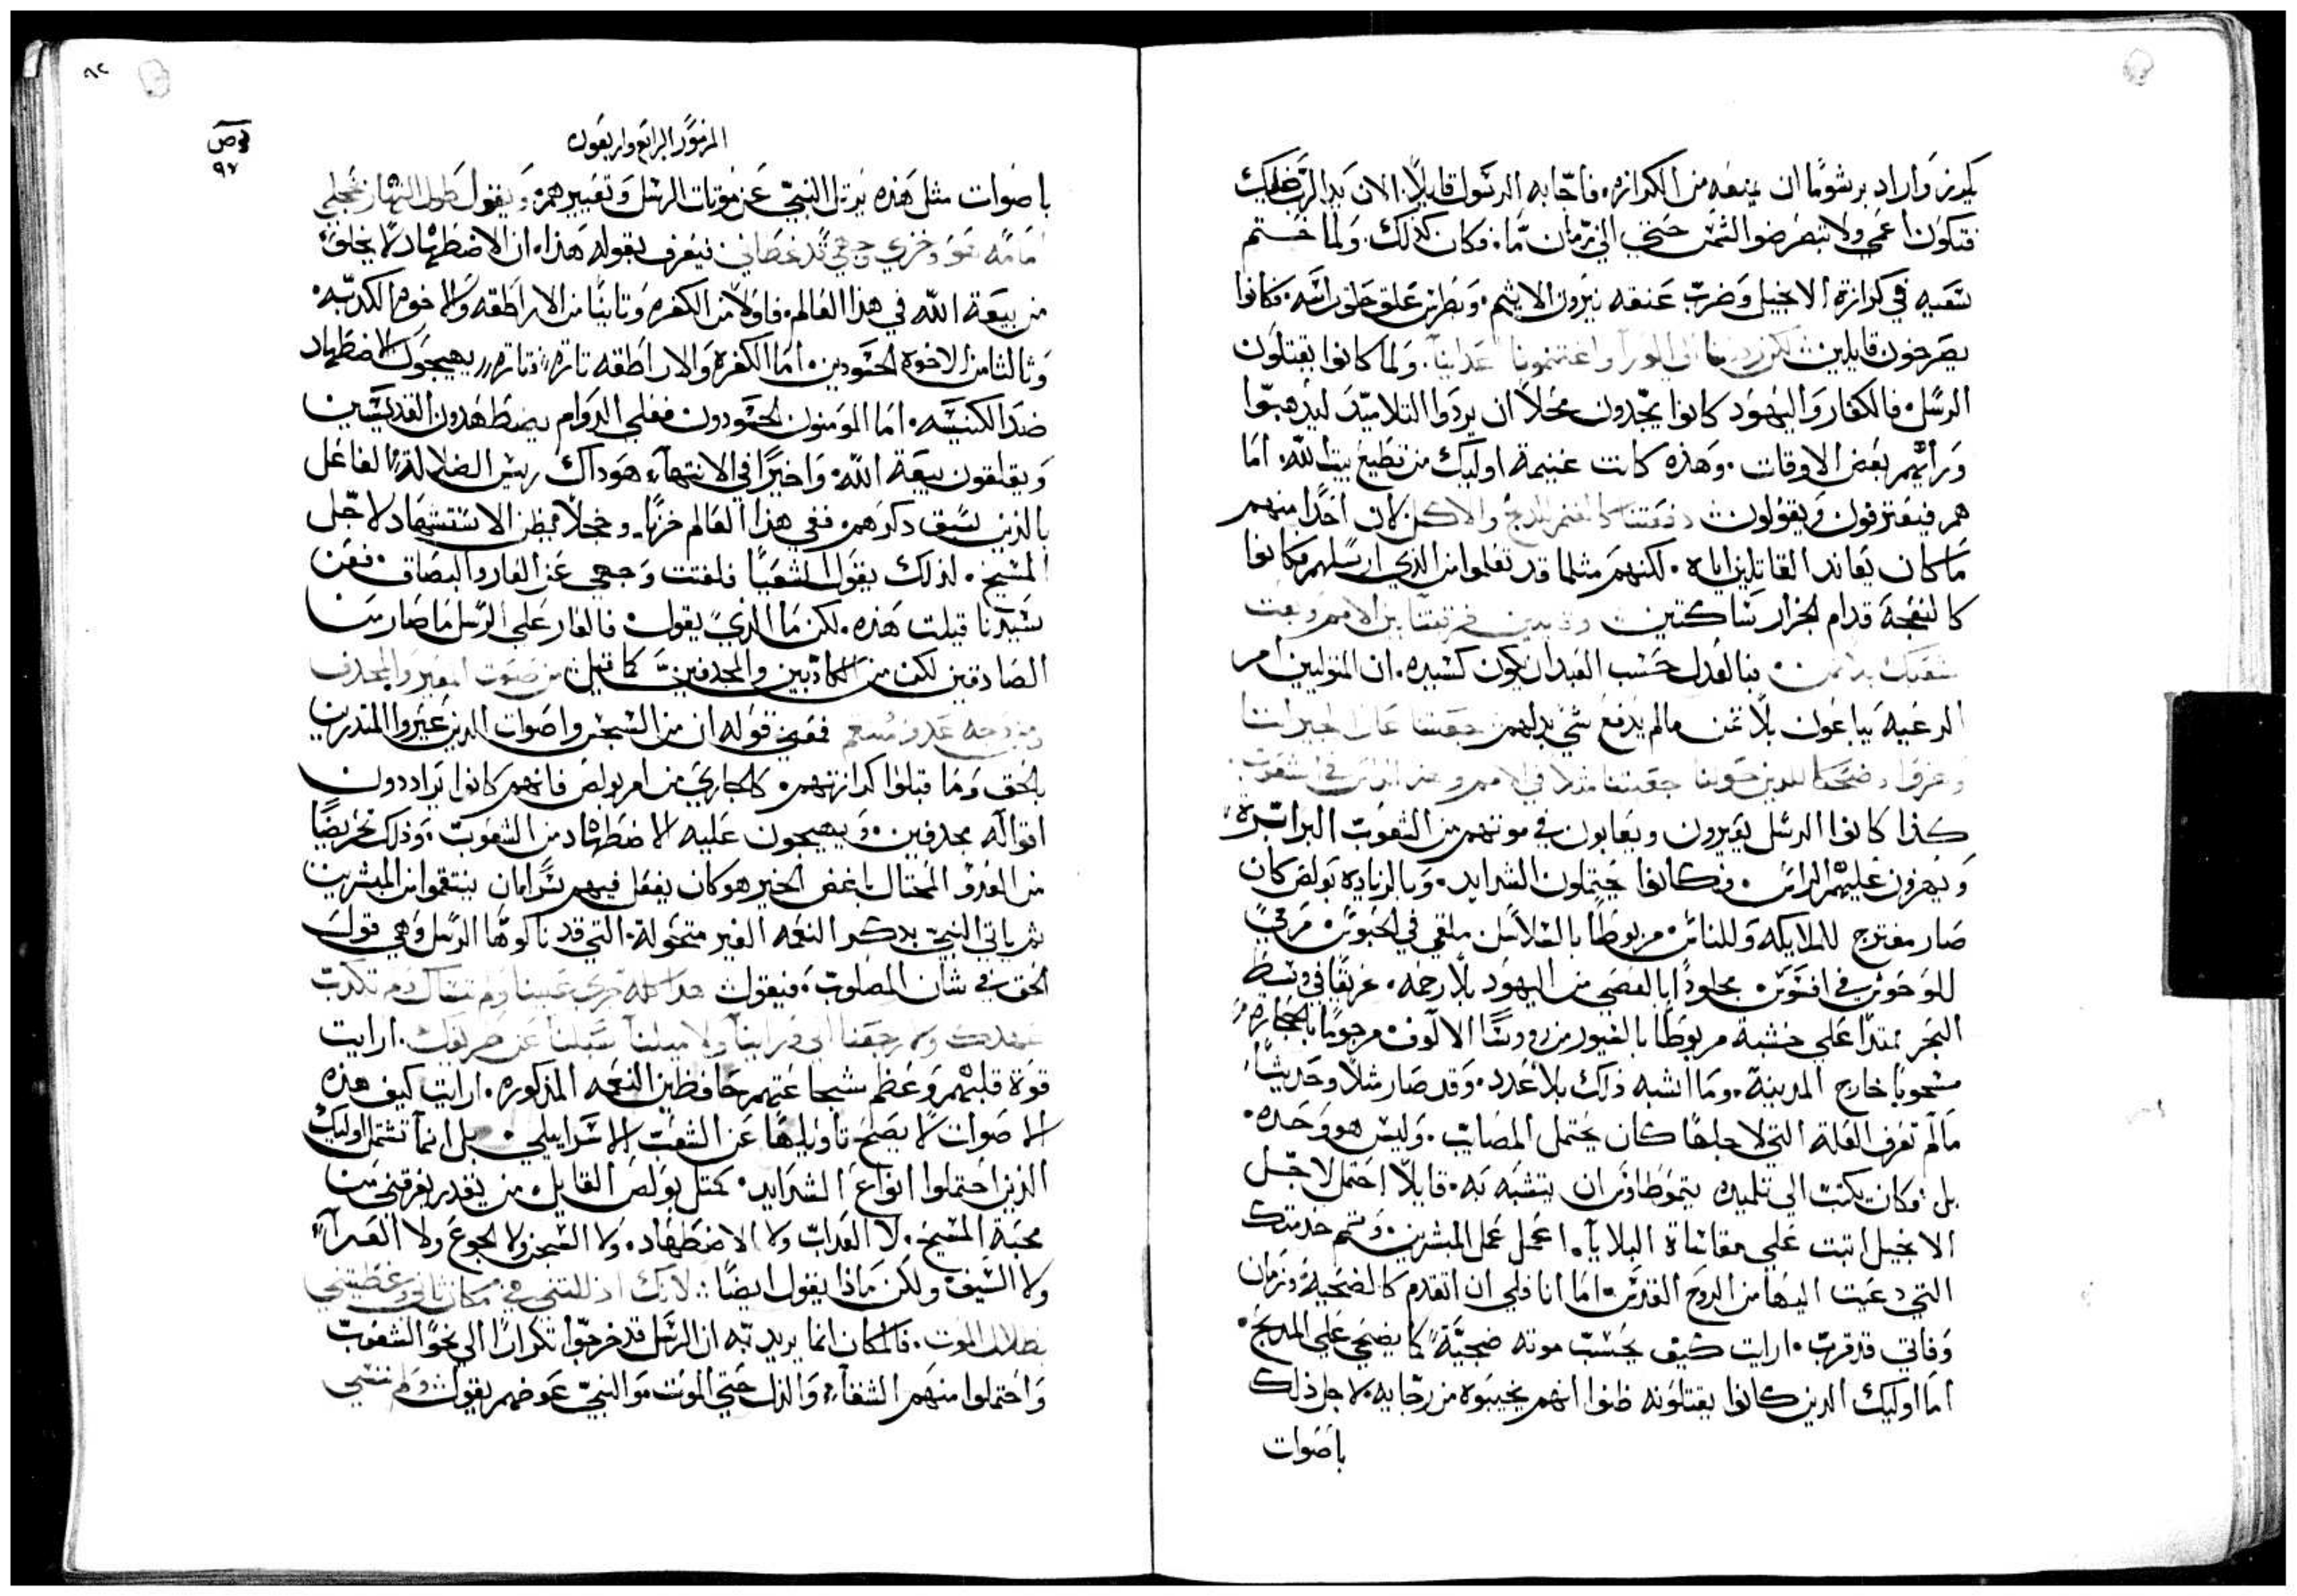 يكرز واراد برشوما ان يمنعه من الكرازه. فاجابه الرسول قايلاً. الان يد الرب عليك
فتكون اعمى ولا تبصر ضوالشمس حتي الي زمان ما. فكان كذلك. ولما ختم
سعيه في كرازة الانجيل وضرب عنقه نيرون الاثيم. وبطرس علق حلق راسه. فكانوا
يصرخون قايلين لكن رديتنا الي الورآ واغتنمونا اعداينا. ولما كانوا يقتلون
الرسل. فالكفار واليهود كانوا يجدون محلاً ان يردوا التلاميد ليذهبوا
ورآيهم بعض الاوقات. وهذه كانت غنيمة اوليك من قطيع بيت الله. اما
هم فيعترفون ويقولون دفعتنا كالغنم للدبح والاكل لان احدًا منهم
ما كان يعاند القاتلين اياه. لكنهم مثلما قد تعلموا من الذي ارسلهم فكانوا
كالنعجة قدام الجزار ساكتين فرقتنا بين الامم وبعت
شعبك بلا ثمن. فبالعدل حسب العبد ان يكون كسيده. ان المتولين امر
الرعيه يباعون بلا ثمن مالم يدفع شي بدلهم جعلتنا عارا لجيراننا
وهزوا وضحكا للدين حولنا جعلتنا مثلا في الامم وهز الراس في الشعوب.
كذا كانوا الرسل يعيرون ويعابون في موتهم من الشعوب البرابره
ويهزون عليهم الراس. فكانوا يحتملون الشدايد. وبالزياده بولص كان
صار مفترج للملايكه وللناس. مربوطًا بالسلاسل ملقي في الحبوس. مرمي
للوحوش في افسوس. مجلودًا بالعصي من اليهود بلا رحمه. غريقًا في وسط
البحر ممتدًا على خشبة مربوطًا بالقيود من روسا الالوف. مرجومًا بالحجاره
مسحوبا خارج المدينة. وما اشبه ذلك بلا عدد. وقد صار مثلاً وحديثًا
مالم تعرف العلة التي لاجلها كان يحتمل المصايب. وليس هو وحده.
بل وكان يكتب الي تلميده يتموطاوس ان يتشبه به. قايلاً احتمل لاجل
الانجيل اتبت على مقاساة البلايآ. اعمل عمل المبشرين. وتمم خدمتك
التي دعيت اليها من الروح القدس. اما انا فلي ان اتقدم كالضحية وزمان
وفاتي قد قرب. ارايت كيف يحسب موته ضحيّة كما يضحي على المدبح.
اما اوليك الدين كانوا يقتلونه ظنوا انهم يخيبوه من رجايه. لاجل ذلك
باصوات
٩٢
٩٧
المزمور الرابع واربعون
باصوات مثل هذه يرتل النبي عن موتات الرسل وتعييرهم. ويقول طول النهار خجلي
امامي هو وخزي وجهي قد غطاني فيعرف بقوله هذا. ان الاضطهاد لا يخلو
من بيعة الله في هذا العالم. فاولاً من الكفره وثانيًا من الاراطقه والاخوه الكدبه.
وثالثا من الاخوة الحسودين. اما الكفرة والاراطقه تارة فتاره يهيجون الاضطهاد
ضد الكنيسه. اما المومنون الحسودون فعلي الدوام يضطهدون القديسين
ويقلقون بيعة الله. واخيرًا في الانتهآء هو داك ريس الضلالة الفاعل
بالذين سبق دكرهم. ففي هذا العالم خزيًا. وخجلاً يظن الاستشهاد لاجل
المسيح. لذلك يقول اشعيا فلفتت وجهي عن العار والبصاق. فعن
سيدنا قيلت هذه. لكن ما الذي يقول. فالعار على الرسل ما صار من
الصادقين لكن من الكادبين والمجدفين كما قيل من صوت المعير والمجدف
ومن وجه عدو منتقم ففي قوله ان من السجس واصوات الدين عيروا المندرين
بالحق وما قبلوا كرازتهم. كالجاري من امر بولص فانهم كانوا يراددون
اقواله مجدفين. ويهيجون عليه الاضطهاد من الشعوب. وذلك تحريضًا
من العدو المحتال باغض الخير هو كان يفعل فيهم سرًا بان ينتقموا من المبشرين
ثم ياتي النبي بدكر النعمه الغير متحولة. التي قد نالوها الرسل وهي قول
الحق في شان المصلوب. فيقول هدا كله جري علينا ولم ننساك ولم نكدب
بعهدك ولا رجعنا الي ورآينآ ولا ميلنا سبلنا عن طريقك. ارايت
قوة قلبهم وعظم شجاعتهم حافظين النعمه المذكوره. ارايت كيف هذه
الاصوات لا يصلح تاويلها عن الشعب الاسراييلي. بل انمآ تشتمل اوليك
الدين احتملوا انواع الشدايد. كمثل بولص القايل. من يقدر يفرقني من
محبة المسيح. لا العداب ولا الاضطهاد. ولا السجن ولا الجوع ولا العرآء
ولا السيف. ولكن ماذا يقول ايضًا. لانك اذللتني في مكان ثاني وغطيتني
بظلال الموت. فالمكان انما يريد به ان الرسل قد خرجوا تكرارًا الي نحو الشعوب
واحتملوا منهم الشقآء. والذل حتي الموت. والنبي عوضهم يقول ولم ننسي